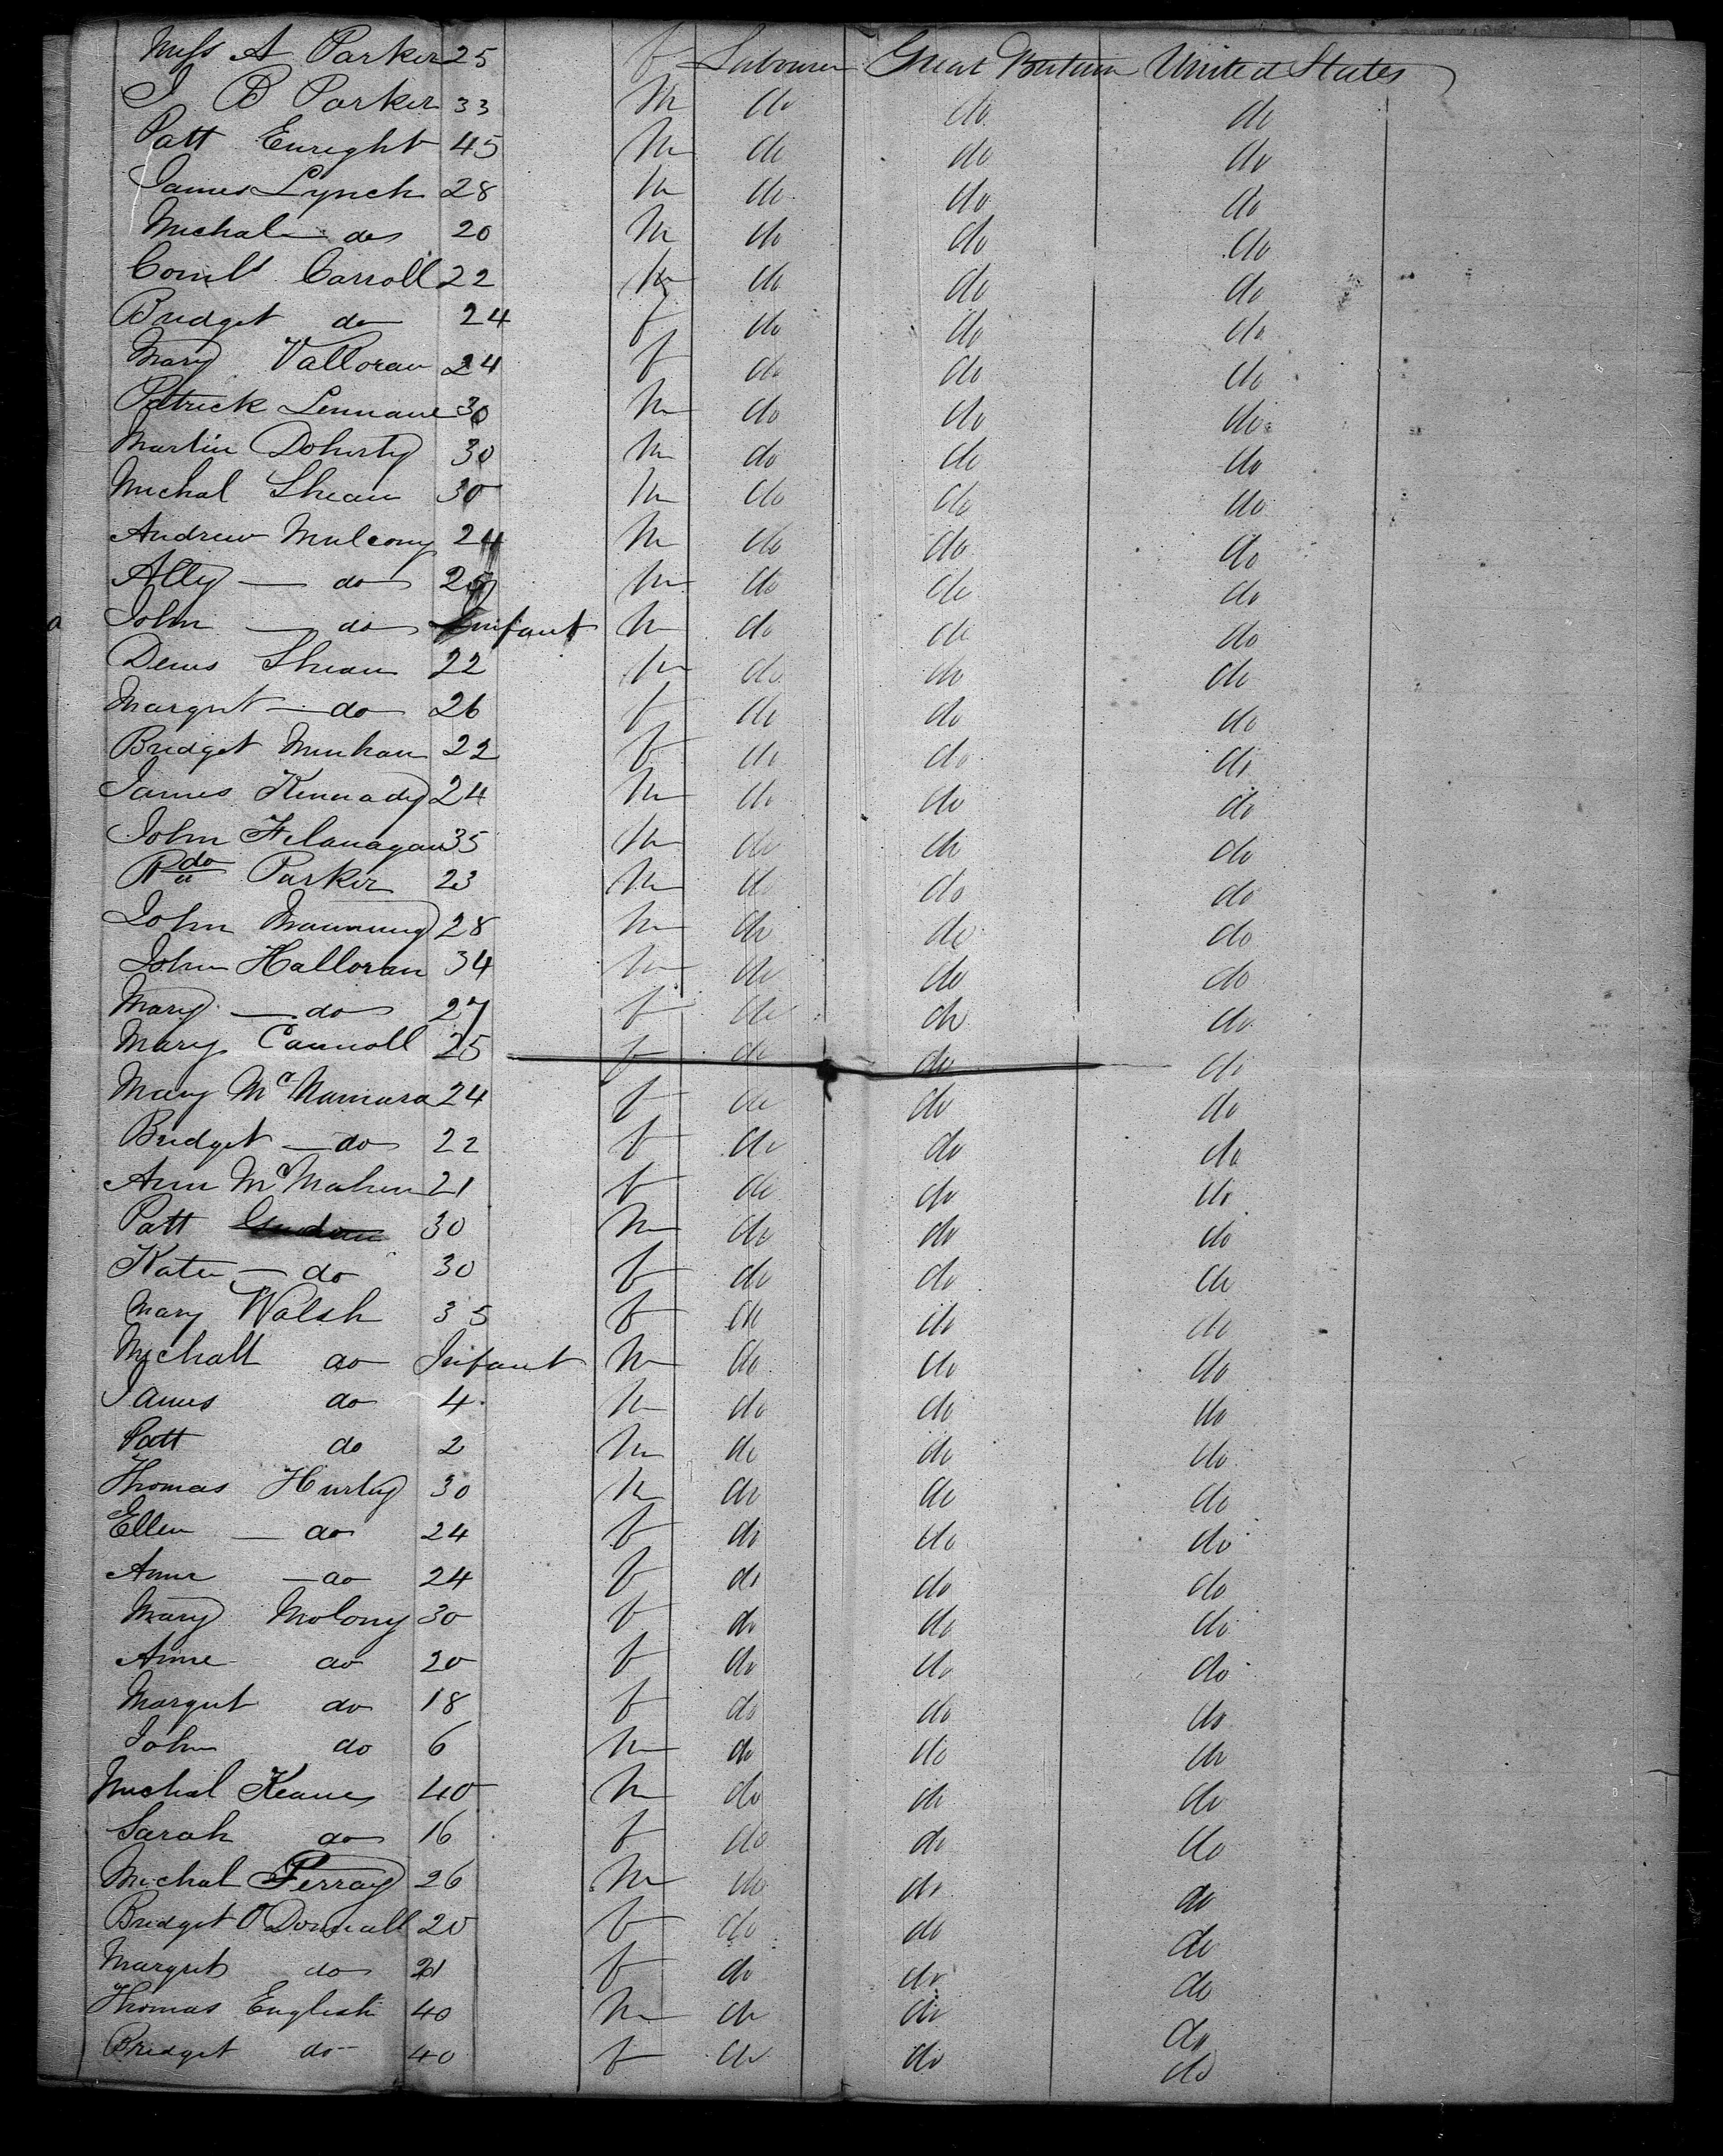 Miss A Parker 25 f Labourer Great Britain United States
J B Parker 33 M do do do
Patt Enright 45 M do do do
James Lynch 28 M do do do
Michal do 20 M do do do
Cornls Carroll 22 M do do do
Bridget do 24 f do do do
Mary Valloran 24 f do do do
Patrick Lennane 30 M do do do
Martin Doherty 30 M do do do
Michal Shean 30 M do do do
Andrew Mulcony 24 M do do do
Ally do 20 M do do do
John do Infant M do do do
Denis Shean 22 M do do do
Margret do 26 f do do do
Bridget Minhan 22 f do do do
James Kennady 24 M do do do
John Flanagan 35 M do do do
Rdo Parker 23 M do do do
John Manning 28 M do do do
John Halloran 34 M do do do
Mary do 27 f do do do
Mary Cannoll 25 f do do do
Mary McNamara 24 f do do do
Bridget do 22 f do do do
Ann McMahon 21 f do do do
Patt 30 M do do do
Kate do 30 f do do do
Mary Walsh 35 f do do do
Michall do Infant M do do do
James do 4 M do do do
Patt do 2 M do do do
Thomas Hurley 30 M do do do
Ellen do 24 f do do do
Anne do 24 f do do do
Mary Molony 30 f do do do
Anne do 20 f do do do
Margret do 18 f do do do
John do 6 M do do do
Michal Keane 40 M do do do
Sarah do 16 f do do do
Michal Perray 26 M do do do
Bridget O'Donnall 20 f do do do
Margret do 21 f do do do
Thomas English 40 M do do do
Bridget do 40 f do do do